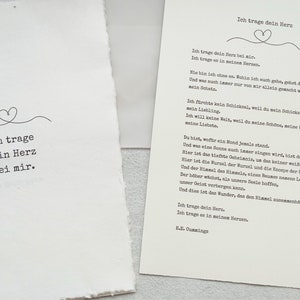 ch trage
in Herz
ei mir.
Ich trage dein Herz
Ich trage dein Herz bei mir.
Ich trage es in meinem Herzen.
Nie bin ich ohne es. Wohin ich auch gehe, gehst d
Und was auch immer nur von mir allein gemacht w
mein Schatz.
Ich fürchte kein Schicksal, weil du mein Schicks
mein Liebling.
Ich will keine Welt, weil du meine Schöne, meine
meine Liebste.
Du bist, wofür ein Mond jemals stand.
Und was eine Sonne auch immer singen wird, bist d
Hier ist das tiefste Geheimnis, um das keiner weiß
Hier ist die Wurzel der Wurzel und die Knospe der
Und der Himmel des Himmels, eines Baumes namens L
Der höher wächst, als unsere Seele hoffen,
unser Geist verbergen kann.
Und dies ist das Wunder, das den Himmel zusammenhä
Ich trage dein Herz.
Ich trage es in meinem Herzen.
E.E. Cummings